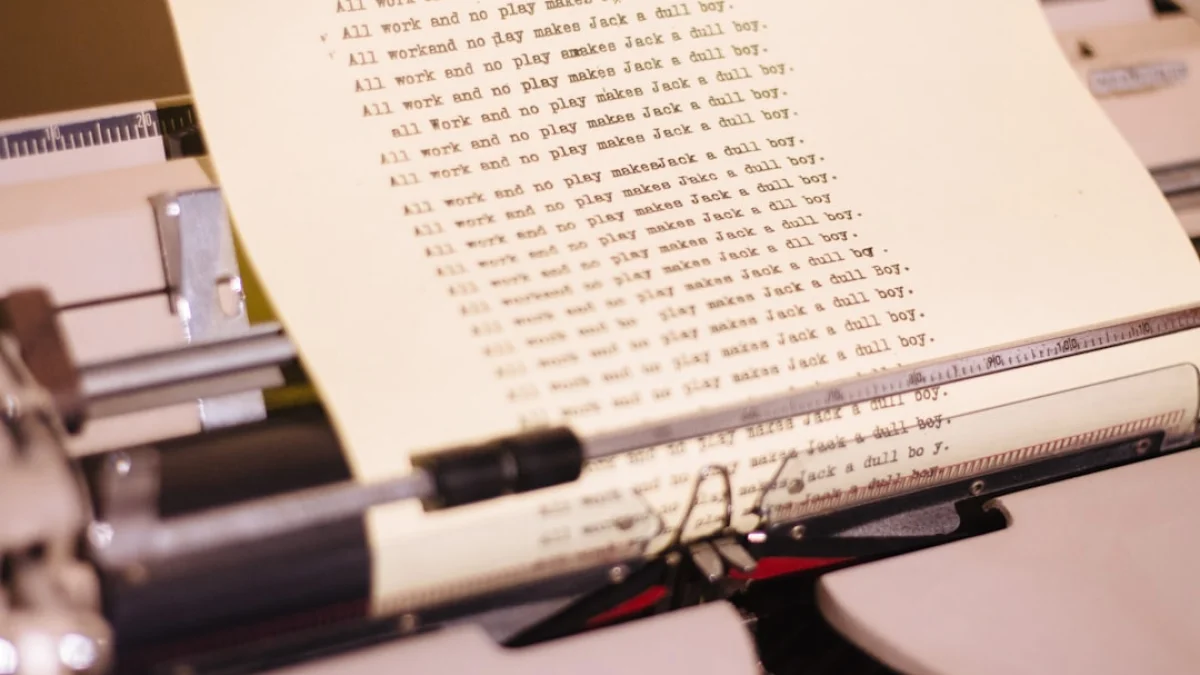 All work
All work and no play makes
All workand no play makes Jack a dull boy.
All work and no play makes Jack a dull boy.
All work and no play makes Jack a dull boy.
all Work and no play makes Jack a dull boy.
All work and no play makes Jack a dull boy.
All work and no play makes Jack a dull boy.
All work and no play makesJack a dull boy.
All work and no play makes Jakc a dull boy.
All work and no play makes Jack a dull boy.
All work and no play makes Jack a dll boy
All work and no play makes Jack a dull boy.
All workand no play makes Jack a dll boy.
All work and no play makes Jack a dull boy .
All work and no play makes Jack a dull Boy.
All work and no play makes Jack a dull boy.
All work and no play makes Jack a dull boy.
All work and no play makes Jack a dull boy.
and no play makes Jack a dull boy.
All work and no play makes Jack a dull boy.
All play makes Jack a dull bo y.
Jack a dull boy.
20
80
90
100
110